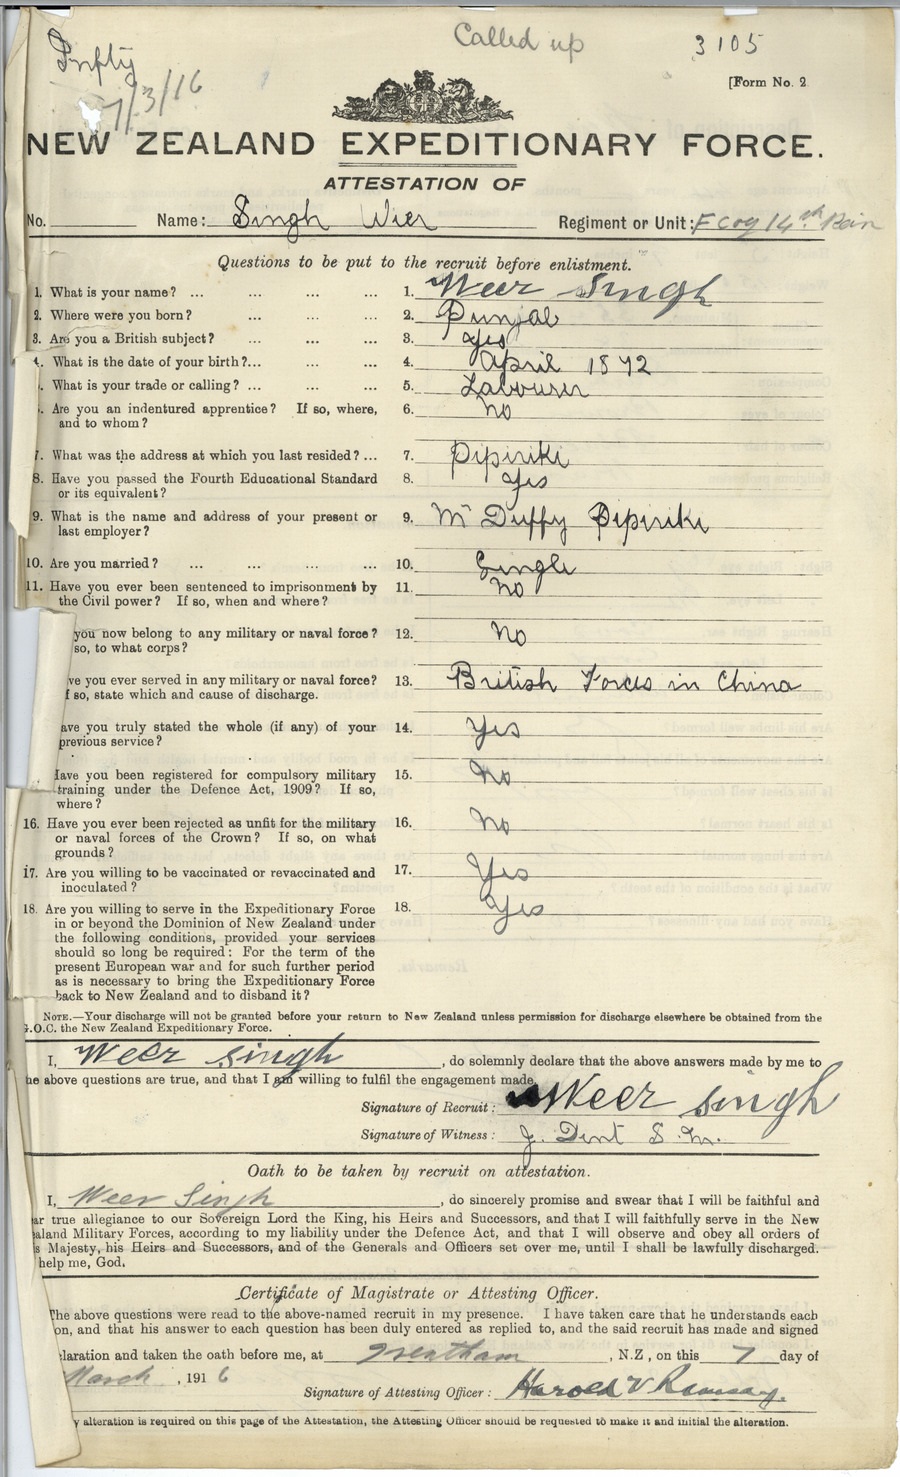 Called up
3105
7/3/16
[Form No. 2
NEW ZEALAND EXPEDITIONARY FORCE.
ATTESTATION OF
No. Name: Singh Wier Regiment or Unit: F Coy 14th Rein
Questions to be put to the recruit before enlistment.
1. What is your name? ... ... ... ... 1. Weer Singh
2. Where were you born? ... ... ... 2. Punjab
3. Are you a British subject? ... ... ... 3. Yes
4. What is the date of your birth?... ... ... 4. April 1872
. What is your trade or calling? ... ... ... 5. Labourer
. Are you an indentured apprentice? If so, where, 6. No
and to whom?
7. What was the address at which you last resided? ... 7. Pipiriki
8. Have you passed the Fourth Educational Standard 8. Yes
or its equivalent?
9. What is the name and address of your present or 9. Mr Duffy Pipiriki
last employer?
10. Are you married? ... ... ... ... 10. Single
11. Have you ever been sentenced to imprisonment by 11. No
the Civil power? If so, when and where?
you now belong to any military or naval force? 12. No
so, to what corps?
ve you ever served in any military or naval force? 13. British Forces in China
f so, state which and cause of discharge.
ave you truly stated the whole (if any) of your 14. Yes
previous service?
Have you been registered for compulsory military 15. No
training under the Defence Act, 1909? If so,
where?
16. Have you ever been rejected as unfit for the military 16. No
or naval forces of the Crown? If so, on what
grounds?
17. Are you willing to be vaccinated or revaccinated and 17. Yes
inoculated?
18. Are you willing to serve in the Expeditionary Force 18. Yes
in or beyond the Dominion of New Zealand under
the following conditions, provided your services
should so long be required: For the term of the
present European war and for such further period
as is necessary to bring the Expeditionary Force
back to New Zealand and to disband it?
NOTE.—Your discharge will not be granted before your return to New Zealand unless permission for discharge elsewhere be obtained from the
G.O.C. the New Zealand Expeditionary Force.
I, Weer singh , do solemnly declare that the above answers made by me to
he above questions are true, and that I am willing to fulfil the engagement made.
Signature of Recruit: Weer singh
Signature of Witness: J. Dent S.M.
Oath to be taken by recruit on attestation.
I, Weer Singh , do sincerely promise and swear that I will be faithful and
ar true allegiance to our Sovereign Lord the King, his Heirs and Successors, and that I will faithfully serve in the New
aland Military Forces, according to my liability under the Defence Act, and that I will observe and obey all orders of
s Majesty, his Heirs and Successors, and of the Generals and Officers set over me, until I shall be lawfully discharged.
help me, God.
Certificate of Magistrate or Attesting Officer.
The above questions were read to the above-named recruit in my presence. I have taken care that he understands each
on, and that his answer to each question has been duly entered as replied to, and the said recruit has made and signed
claration and taken the oath before me, at Trentham , N.Z., on this 7 day of
March , 1916
Signature of Attesting Officer: Harold V Ramsay.
y alteration is required on this page of the Attestation, the Attesting Officer should be requested to make it and initial the alteration.